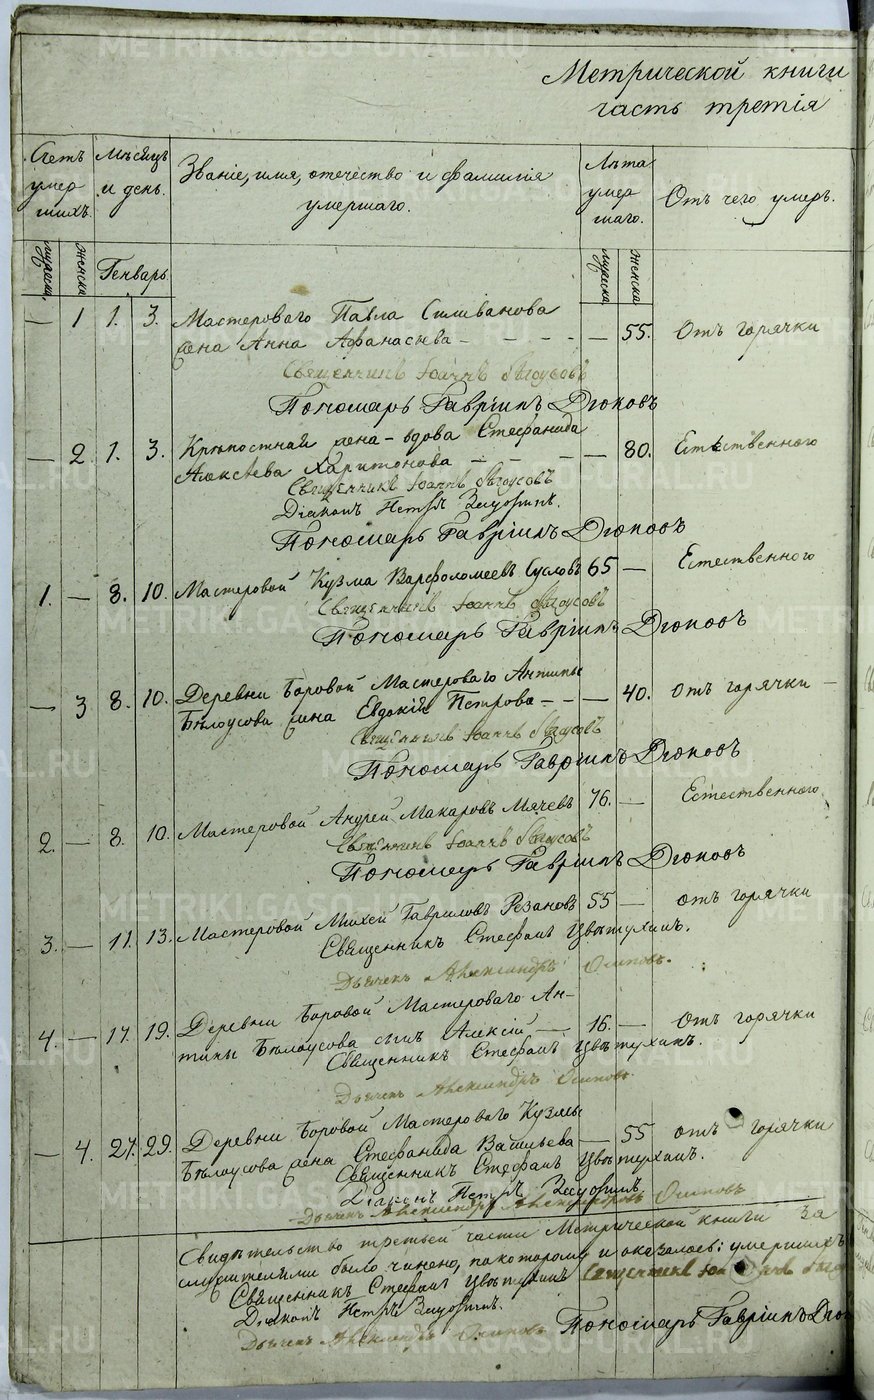 METRIKI.GASO-URAL.RU
Метрической книги
часть третія
Счетъ умер шихъ.
Мѣсяцъ и день.
Званіе, имя, отечество и фамилія умершаго.
Лѣта умер шаго.
Отъ чего умеръ.
мужска. женска Генварь. мужска женска
— 1 1. 3. Мастероваго Павла Силиванова
жена Анна Афанасьева — — 55. Отъ горячки
Священникъ Іоаннъ
Пономарь Гавріилъ Дюковъ
— 2. 1. 3. Крѣпостная жена-вдова Стефанида
Алексѣева Харитонова — — 80. Естественного
Священникъ Іоаннъ
Діаконъ Петръ
Пономарь Гавріилъ Дюковъ
1. — 8. 10. Мастеровой Кузма Варфоломеевъ Сусловъ 65 — Естественного
Священникъ Іоаннъ
Пономарь Гавріилъ Дюковъ
— 3 8. 10. Деревни Боровой Мастероваго Антипы
Бѣлоусова жена Евдокія Петрова — — 40. Отъ горячки —
Священникъ Іоаннъ
Пономарь Гавріилъ Дюковъ
2. — 8. 10. Мастеровой Андрей Макаровъ Мячевъ 76. — Естественного
Священникъ Іоаннъ
Пономарь Гавріилъ Дюковъ
3. — 11. 13. Мастеровой Михей Гавриловъ Резановъ 55 — отъ горячки
Священникъ Стефанъ Цвѣтухинъ.
Дьячекъ Александръ Осиповъ.
4. — 17. 19. Деревни Боровой Мастероваго Ан-
типы Бѣлоусова сынъ Алексій — 16. — Отъ горячки
Священникъ Стефанъ Цвѣтухинъ.
Дьячекъ Александръ Осиповъ.
— 4. 27. 29. Деревни Боровой Мастероваго Кузмы
Бѣлоусова жена Стефанида Васильева — 55 отъ горячки
Священникъ Стефанъ Цвѣтухинъ.
Діаконъ Петръ
Дьячекъ Александръ Осиповъ
Свидѣтельство третьей части Метрической книги За
служителями было чинено, по которому и оказалось: умершихъ
Священникъ Стефанъ Цвѣтухинъ Священникъ Іоаннъ
Діаконъ Петръ
Дьячекъ Александръ Осиповъ Пономарь Гавріилъ